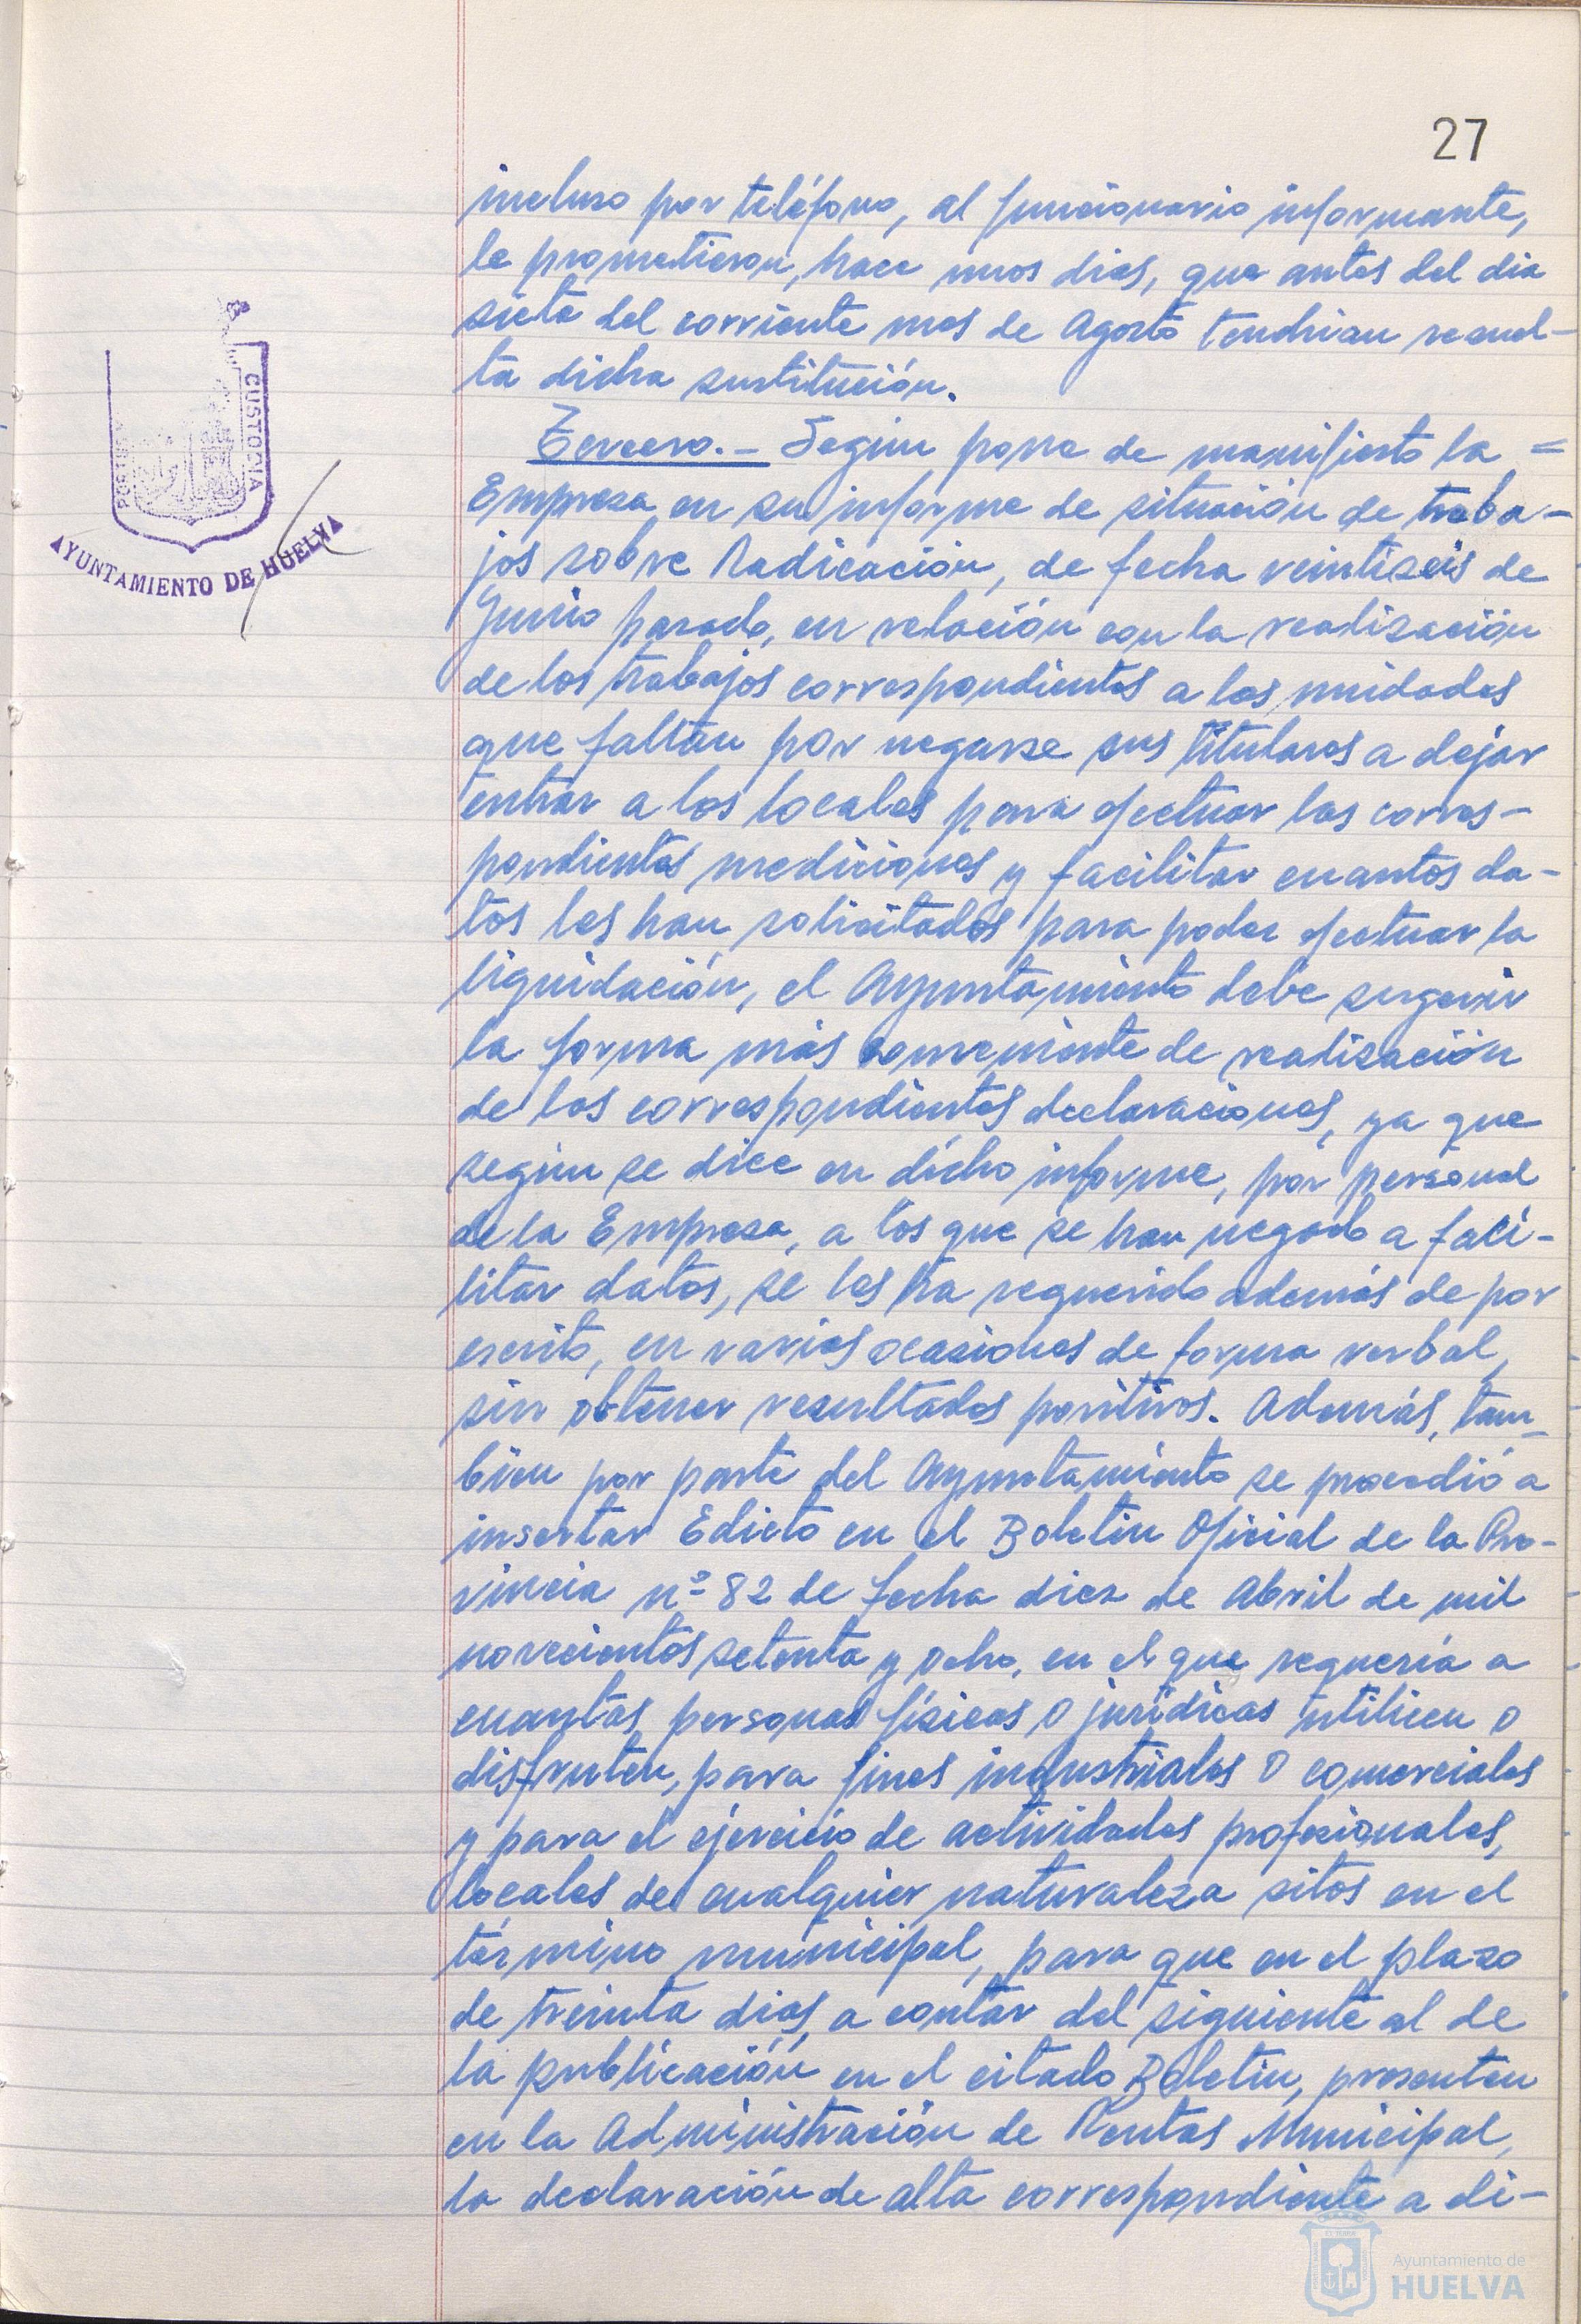 27
incluso por teléfono, al funcionario informante,
le prometieron, hace unos dias, que antes del dia
siete del corriente mes de Agosto tendrian resuel-
ta dicha sustitución.
Tercero.- Según pone de manifiesto la =
Empresa en su informe de situación de traba-
jos sobre Radicación, de fecha veintiseis de
Junio pasado, en relación con la realización
de los trabajos correspondientes a las unidades
que faltan por negarse sus titulares a dejar
entrar a los locales para efectuar las corres-
pondientes mediciones y facilitar cuantos da-
tos les han solicitados para poder efectuar la
liquidación, el Ayuntamiento debe sugerir
la forma más conveniente de realización
de las correspondientes declaraciones, ya que
según se dice en dicho informe, por personal
de la Empresa, a los que se han negado a faci-
litar datos, se les ha requerido además de por
escrito, en varias ocasiones de forma verbal,
sin obtener resultados positivos. Además, tam-
bién por parte del Ayuntamiento se procedió a
insertar Edicto en el Boletin Oficial de la Pro-
vincia nº 82 de fecha diez de Abril de mil
novecientos setenta y ocho, en el que requeria a
cuantas personas fisicas o juridicas utilicen o
disfruten, para fines industriales o comerciales
y para el ejercicio de actividades profesionales,
locales de cualquier naturaleza sitos en el
término municipal, para que en el plazo
de treinta dias a contar del siguiente al de
la publicación en el citado Boletin, presenten
en la Administración de Rentas Municipal,
la declaración de alta correspondiente a di-
CUSTODIA
AYUNTAMIENTO DE HUELVA
Ayuntamiento de
HUELVA